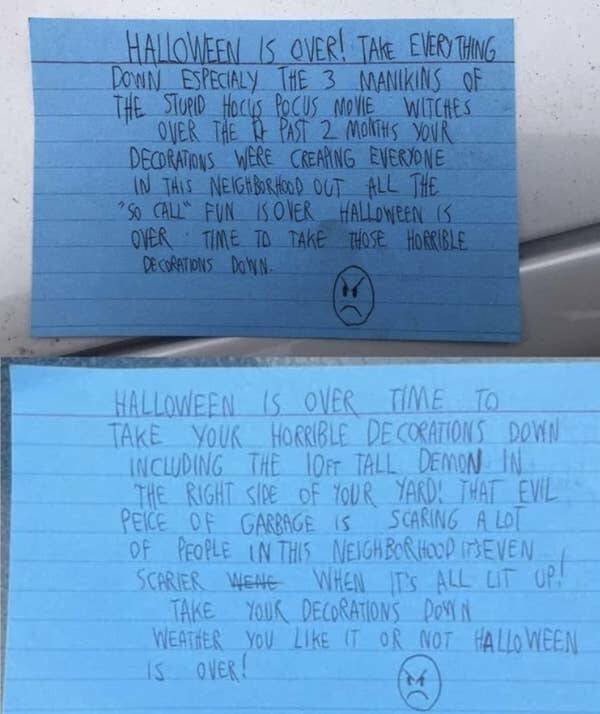 HALLOWEEN IS OVER! TAKE EVERYTHING
DOWN ESPECIALY THE 3 MANIKINS OF
THE STUPID HOCUS POCUS MOVIE WITCHES
OVER THE PAST 2 MONTHS YOUR
DECORATIONS WERE CREAPING EVERYONE
IN THIS NEIGHBORHOOD OUT ALL THE
"SO CALL" FUN IS OVER HALLOWEEN IS
OVER TIME TO TAKE THOSE HORRIBLE
DECORATIONS DOWN.
HALLOWEEN IS OVER TIME TO
TAKE YOUR HORRIBLE DECORATIONS DOWN
INCLUDING THE 10FT TALL DEMON IN
THE RIGHT SIDE OF YOUR YARD! THAT EVIL
PEICE OF GARBAGE IS SCARING A LOT
OF PEOPLE IN THIS NEIGHBORHOOD IT'S EVEN
SCARIER WENE WHEN IT'S ALL LIT UP!
TAKE YOUR DECORATIONS DOWN
WEATHER YOU LIKE IT OR NOT HALLOWEEN
IS OVER!